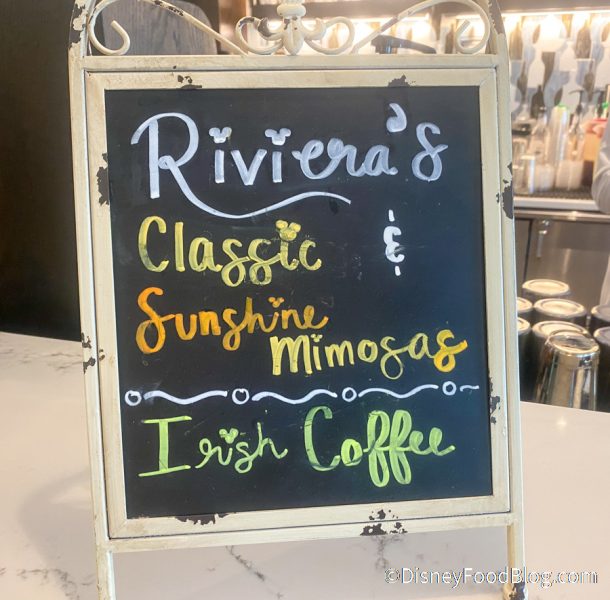 Riviera's
Classic &
Sunshine
Mimosas
Irish Coffee
©DisneyFoodBlog.com